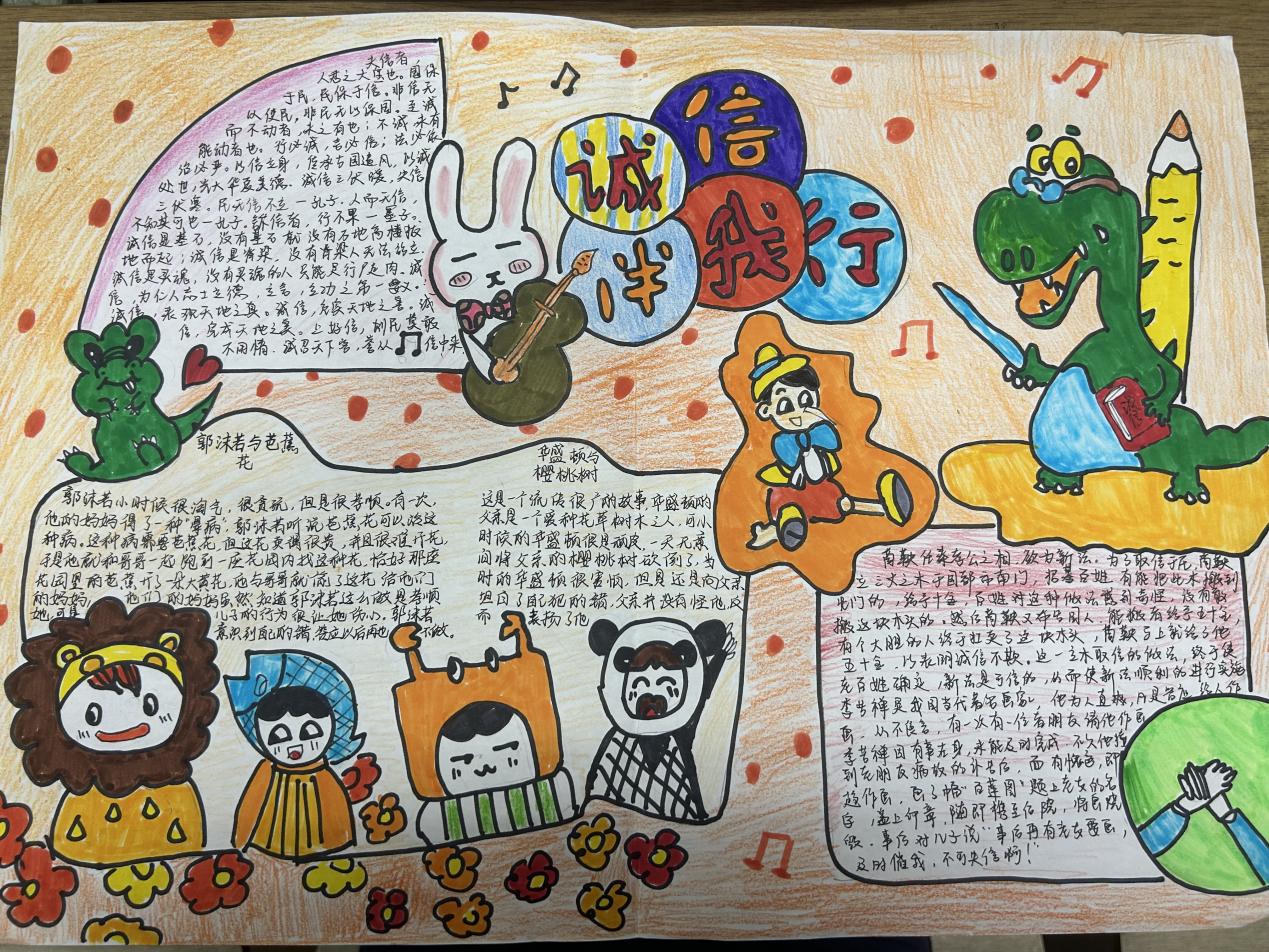 诚信
伴我行
夫信者，
人君之大宝也。国保
于民，民保于信。非信无
以使民，非民无以保国。至诚
而不动者，未之有也；不诚未有
能动者也。行必诚，言必信；法必依
治必严。以信立身，传承古国遗风，以诚
处世，当大华夏美德。诚信三伏暖，失信
三伏寒。民无信不立一孔子。人而无信，
不知其可也一孔子。言不信者，行不果一墨子。
诚信是基石，没有基石就没有石地高楼拔
地而起；诚信是脊梁，没有脊梁人无法站立；
诚信是灵魂，没有灵魂的人只能是行尸走肉。诚
信，为仁人志士立德、立言、立功之第一要义。
诚信，表现天地之真。诚信，包容天地之善。诚
信，完成天地之美。上好信，则民莫敢
不用情。诚召天下客，誉从信中来
郭沫若与芭蕉
花
郭沫若小时候很淘气，很贪玩，但是很孝顺。有一次，
他的妈妈得了一种"晕病"。郭沫若听说芭蕉花可以治这
种病。这种病需要芭蕉花，但这花卖得很贵，并且很难开花
于是他就和哥哥一起跑到一座花园内找这种花，恰好那座
花园里的芭蕉开了一朵大黄花，他与哥哥就摘了这花给他们
的妈妈，他们的妈妈虽然知道郭沫若这么做是孝顺
她，可是儿子的行为很让她伤心。郭沫若
意识到自己的错，答应以后再也不做。
华盛顿与
樱桃树
这是一个流传很广的故事，华盛顿的
父亲是一个爱种花草树木之人，可小
时候的华盛顿很是顽皮，一天无意
间将父亲的樱桃树砍倒了，当
时的华盛顿很害怕，但是还是向父亲
坦白了自己犯的错，父亲并没有怪他，反
而表扬了他
商鞅任秦孝公之相，欲为新法。为了取信于民，商鞅
立三丈之木于国都市南门，招募百姓有能把此木搬到
北门的，给予十金。百姓对这种做法感到奇怪，没有敢
搬这块木头的。然后商鞅又布告国人，能搬者给予五十金，
有个大胆的人终于扛走了这块木头，商鞅马上就给了他
五十金，以表明诚信不欺。这一立木取信的做法，终于使
老百姓确定，新法是可信的，从而使新法顺利的进行实施
李苦禅是我国当代著名画家，他为人直爽，凡是答应给人作
画，从不食言，有一次有一位老朋友请他作画
李苦禅因有事在身，未能及时完成，不久他接
到老朋友病故的讣告后，面有愧色，即
趋作画，画了幅"百莲图"，题上老友的名
字，盖上印章，随即携至后院，将画烧
毁。事后对儿子说"事后再有老友要画，
及时催我，不可失信啊！"